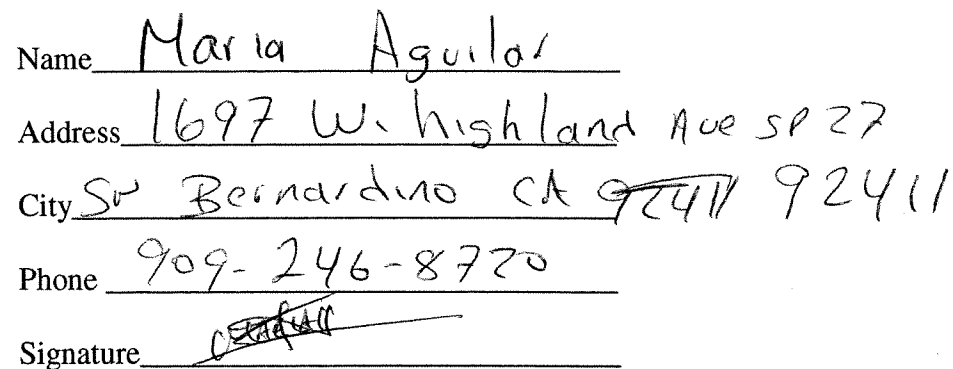 Name Maria Aguilar
Address 1697 W. highland Ave SP 27
City Sn Bernardino CA 92411 92411
Phone 909-246-8720
Signature